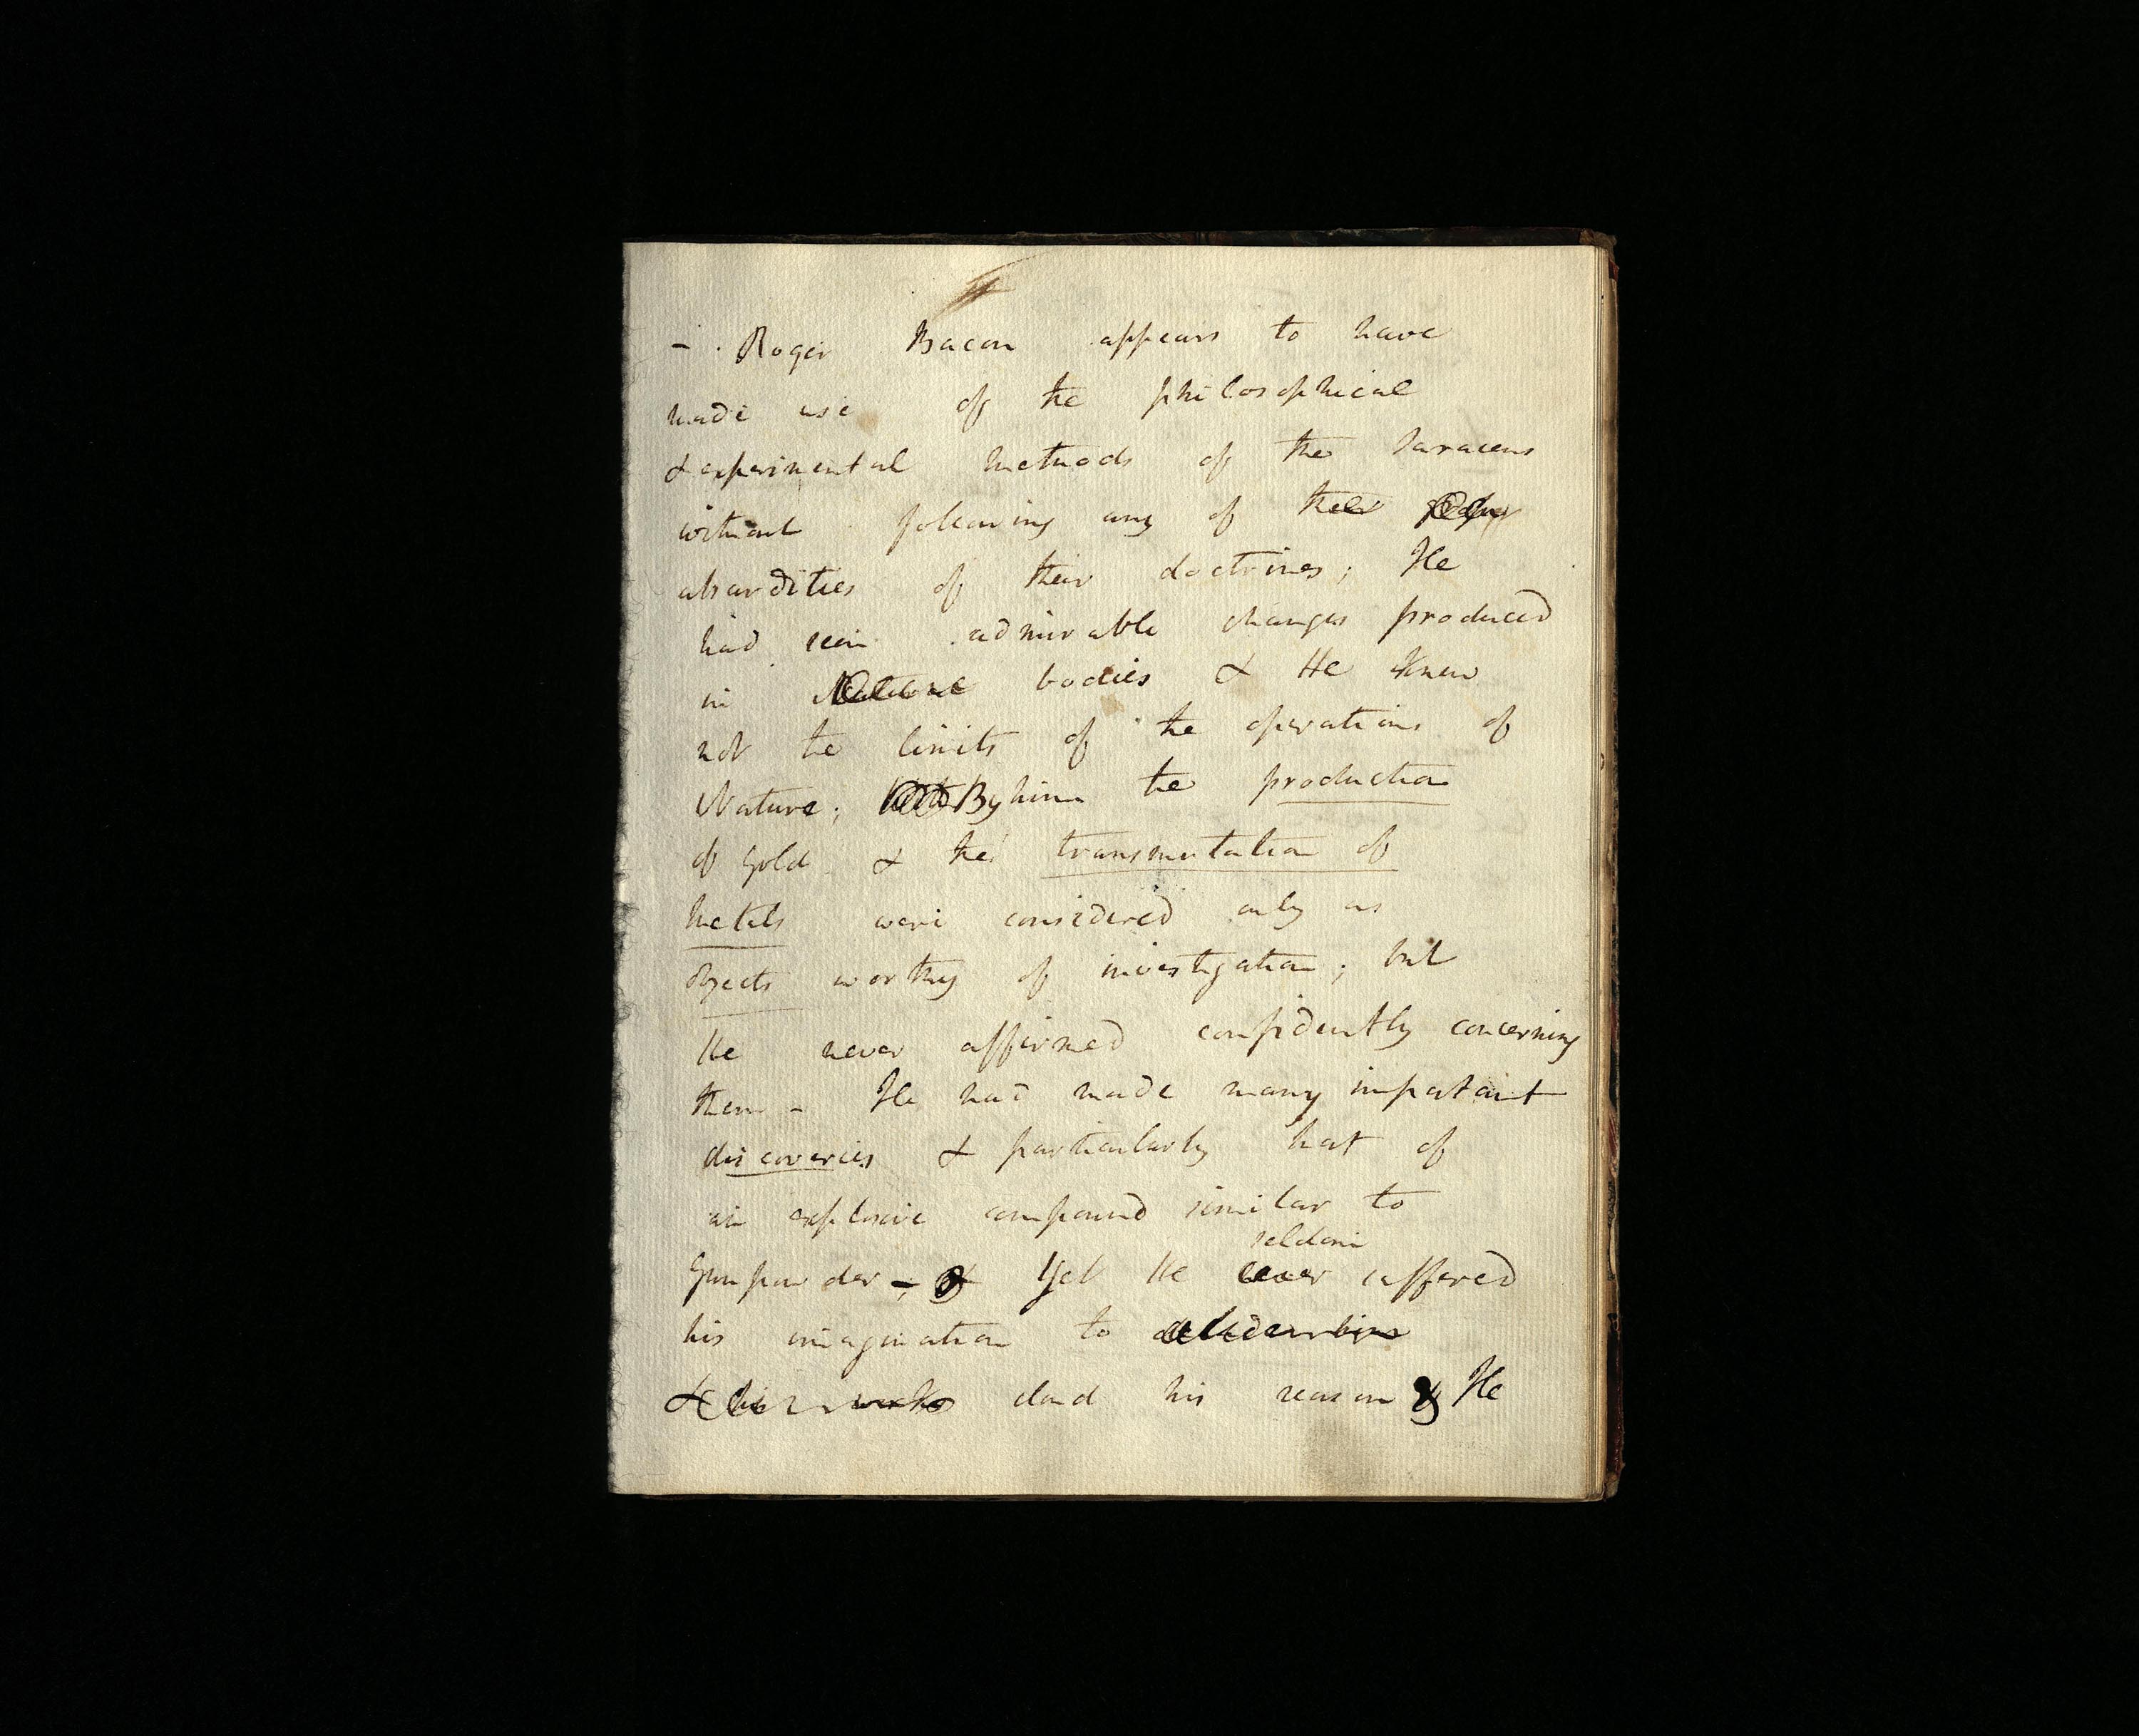 - . Roger Bacon appears to have
made use of the philosophical
& experimental methods of the Saracens
without following any of the
absurdities of their doctrines; He
had seen admirable changes produced
in bodies & He knew
not the limits of the operations of
Nature; By him the production
of Gold & the transmutation of
metals were considered only as
objects worthy of investigation; but
He never affirmed confidently concerning
them - He had made many important
discoveries & particularly that of
an explosive compound similar to
seldom
Gunpowder -, & Yet He never suffered
his imagination to
& his works cloud his reason & He